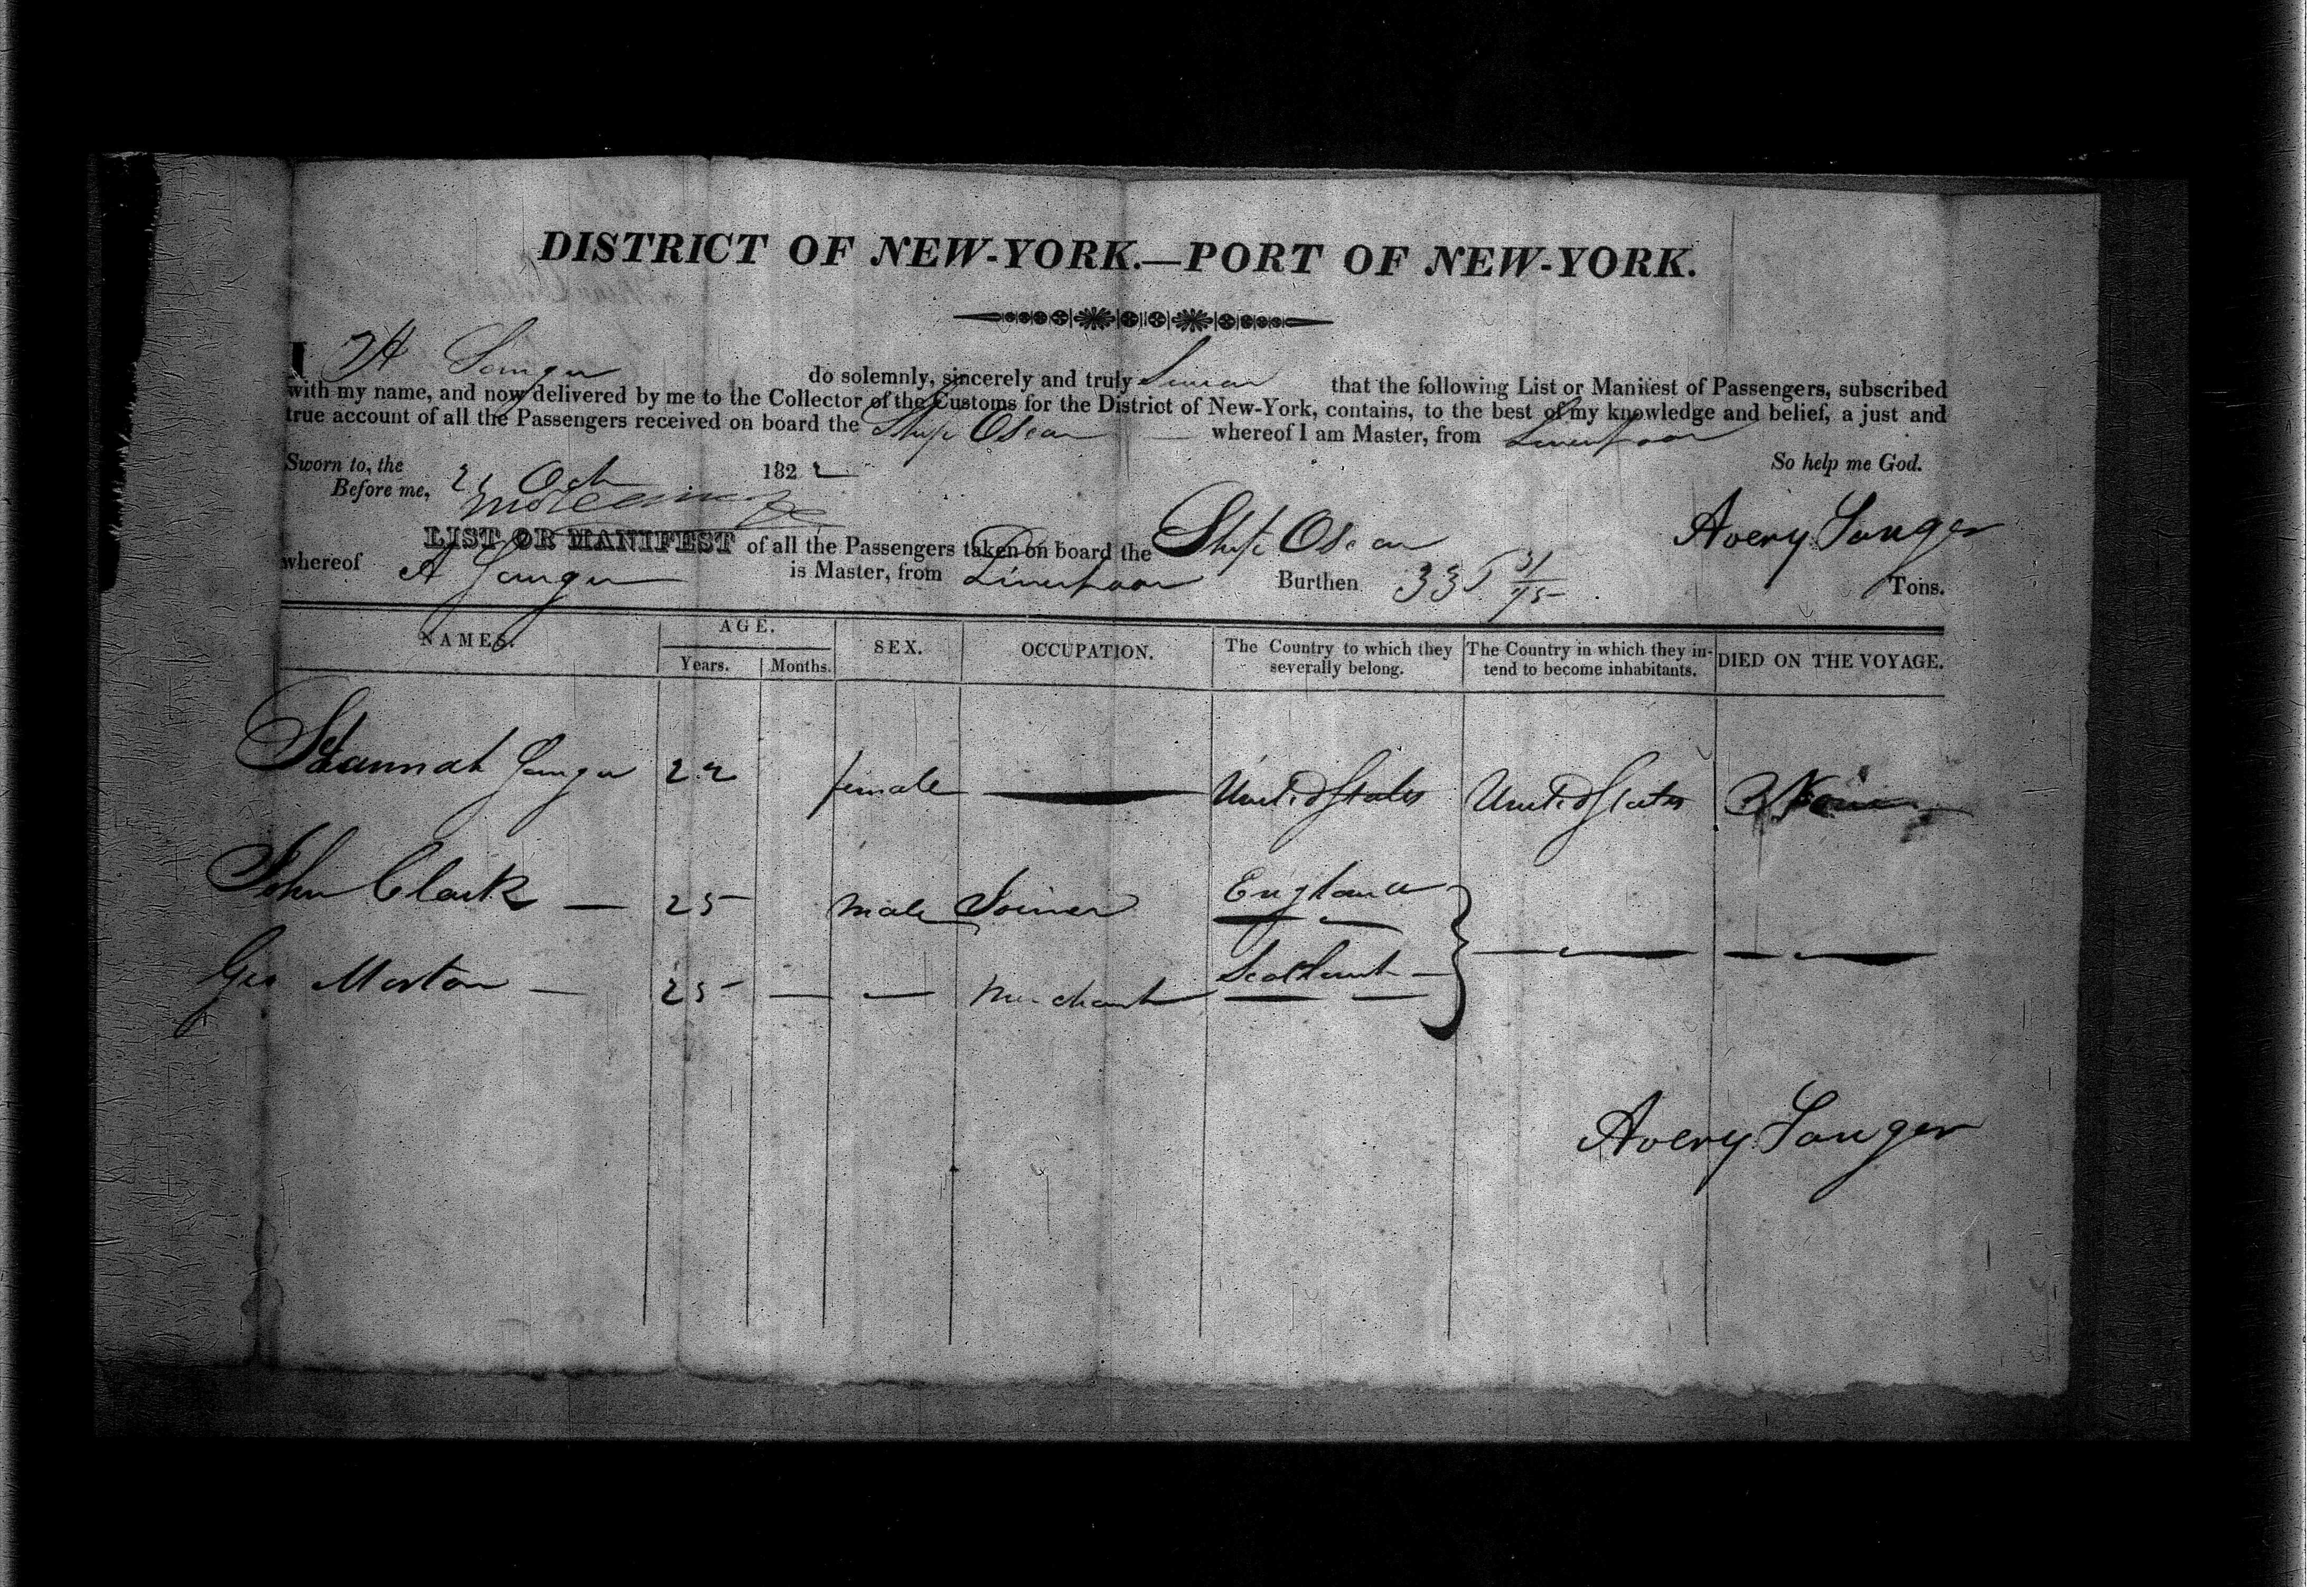 DISTRICT OF NEW-YORK.—PORT OF NEW-YORK.
I A Sanger do solemnly, sincerely and truly Swear that the following List or Manifest of Passengers, subscribed
with my name, and now delivered by me to the Collector of the Customs for the District of New-York, contains, to the best of my knowledge and belief, a just and
true account of all the Passengers received on board the Ship Oscar whereof I am Master, from Liverpool
Sworn to, the 21 Oct 1822 So help me God.
Before me,
Avery Sanger
LIST OR MANIFEST of all the Passengers taken on board the Ship Oscar
whereof A Sanger is Master, from Liverpool Burthen 335 31/95 Tons.
NAMES. AGE. SEX. OCCUPATION. The Country to which they severally belong. The Country in which they intend to become inhabitants. DIED ON THE VOYAGE.
Years. Months.
Hannah Sanger 22 female — United States United States None
John Clark — 25 male Joiner England — —
Geo Morton — 25 — — Merchant Scotland —
Avery Sanger